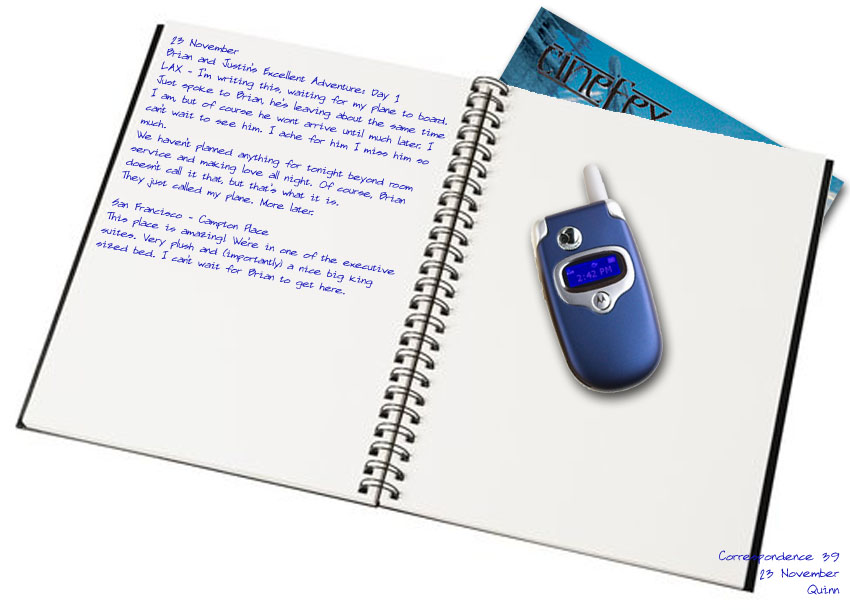 23 November
Brian and Justin's Excellent Adventure: Day 1
LAX - I'm writing this, waiting for my plane to board.
Just spoke to Brian, he's leaving about the same time
I am, but of course he wont arrive until much later. I
can't wait to see him. I ache for him I miss him so
much.
We haven't planned anything for tonight beyond room
service and making love all night. Of course, Brian
doesn't call it that, but that's what it is.
They just called my plane. More later.
San Francisco - Campton Place
This place is amazing! We're in one of the executive
suites. Very plush and (importantly) a nice big king
sized bed. I can't wait for Brian to get here.
cinefex
2:42 PM
Correspondence 39
23 November
Quinn